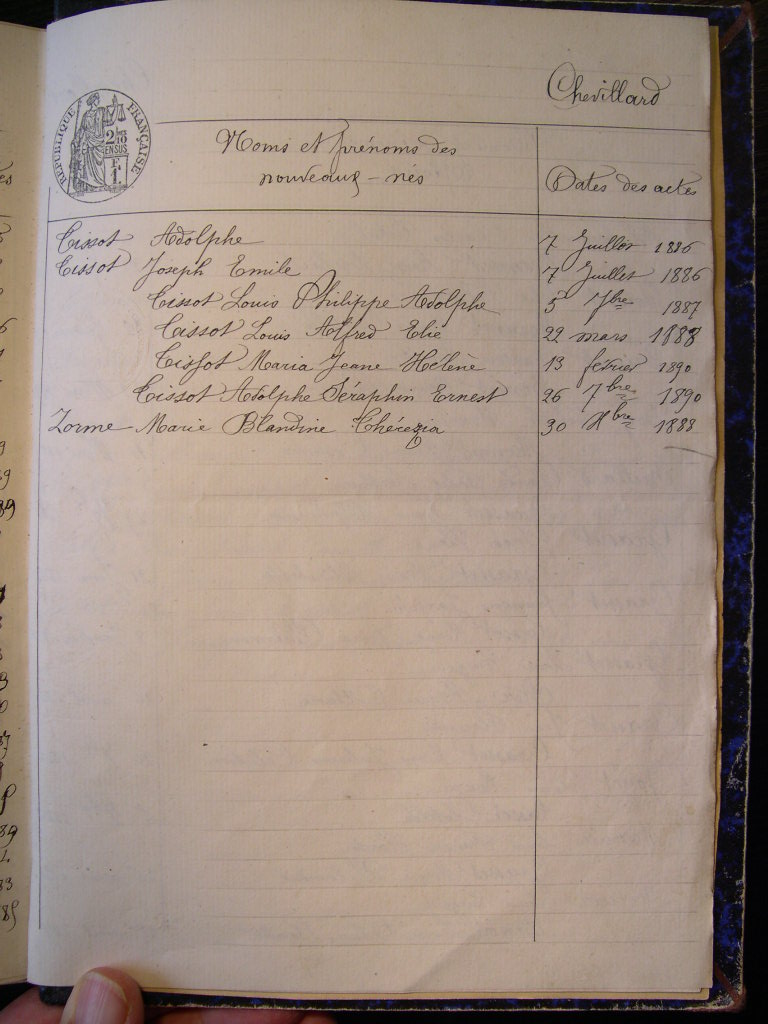 Chevillard
RÉPUBLIQUE FRANÇAISE
2/10mes
EN SUS
1F.
Noms et prénoms des
nouveaux-nés
Dates des actes
Tissot Adolphe 7 Juillet 1886
Tissot Joseph Emile 7 Juillet 1886
Tissot Louis Philippe Adolphe 5 7bre 1887
Tissot Louis Alfred Elie 22 mars 1888
Tissot Maria Jeane Hélène 13 février 1890
Tissot Adolphe Séraphin Ernest 26 7bre 1890
Zorme Marie Blandine Thérezia 30 Xbre 1888